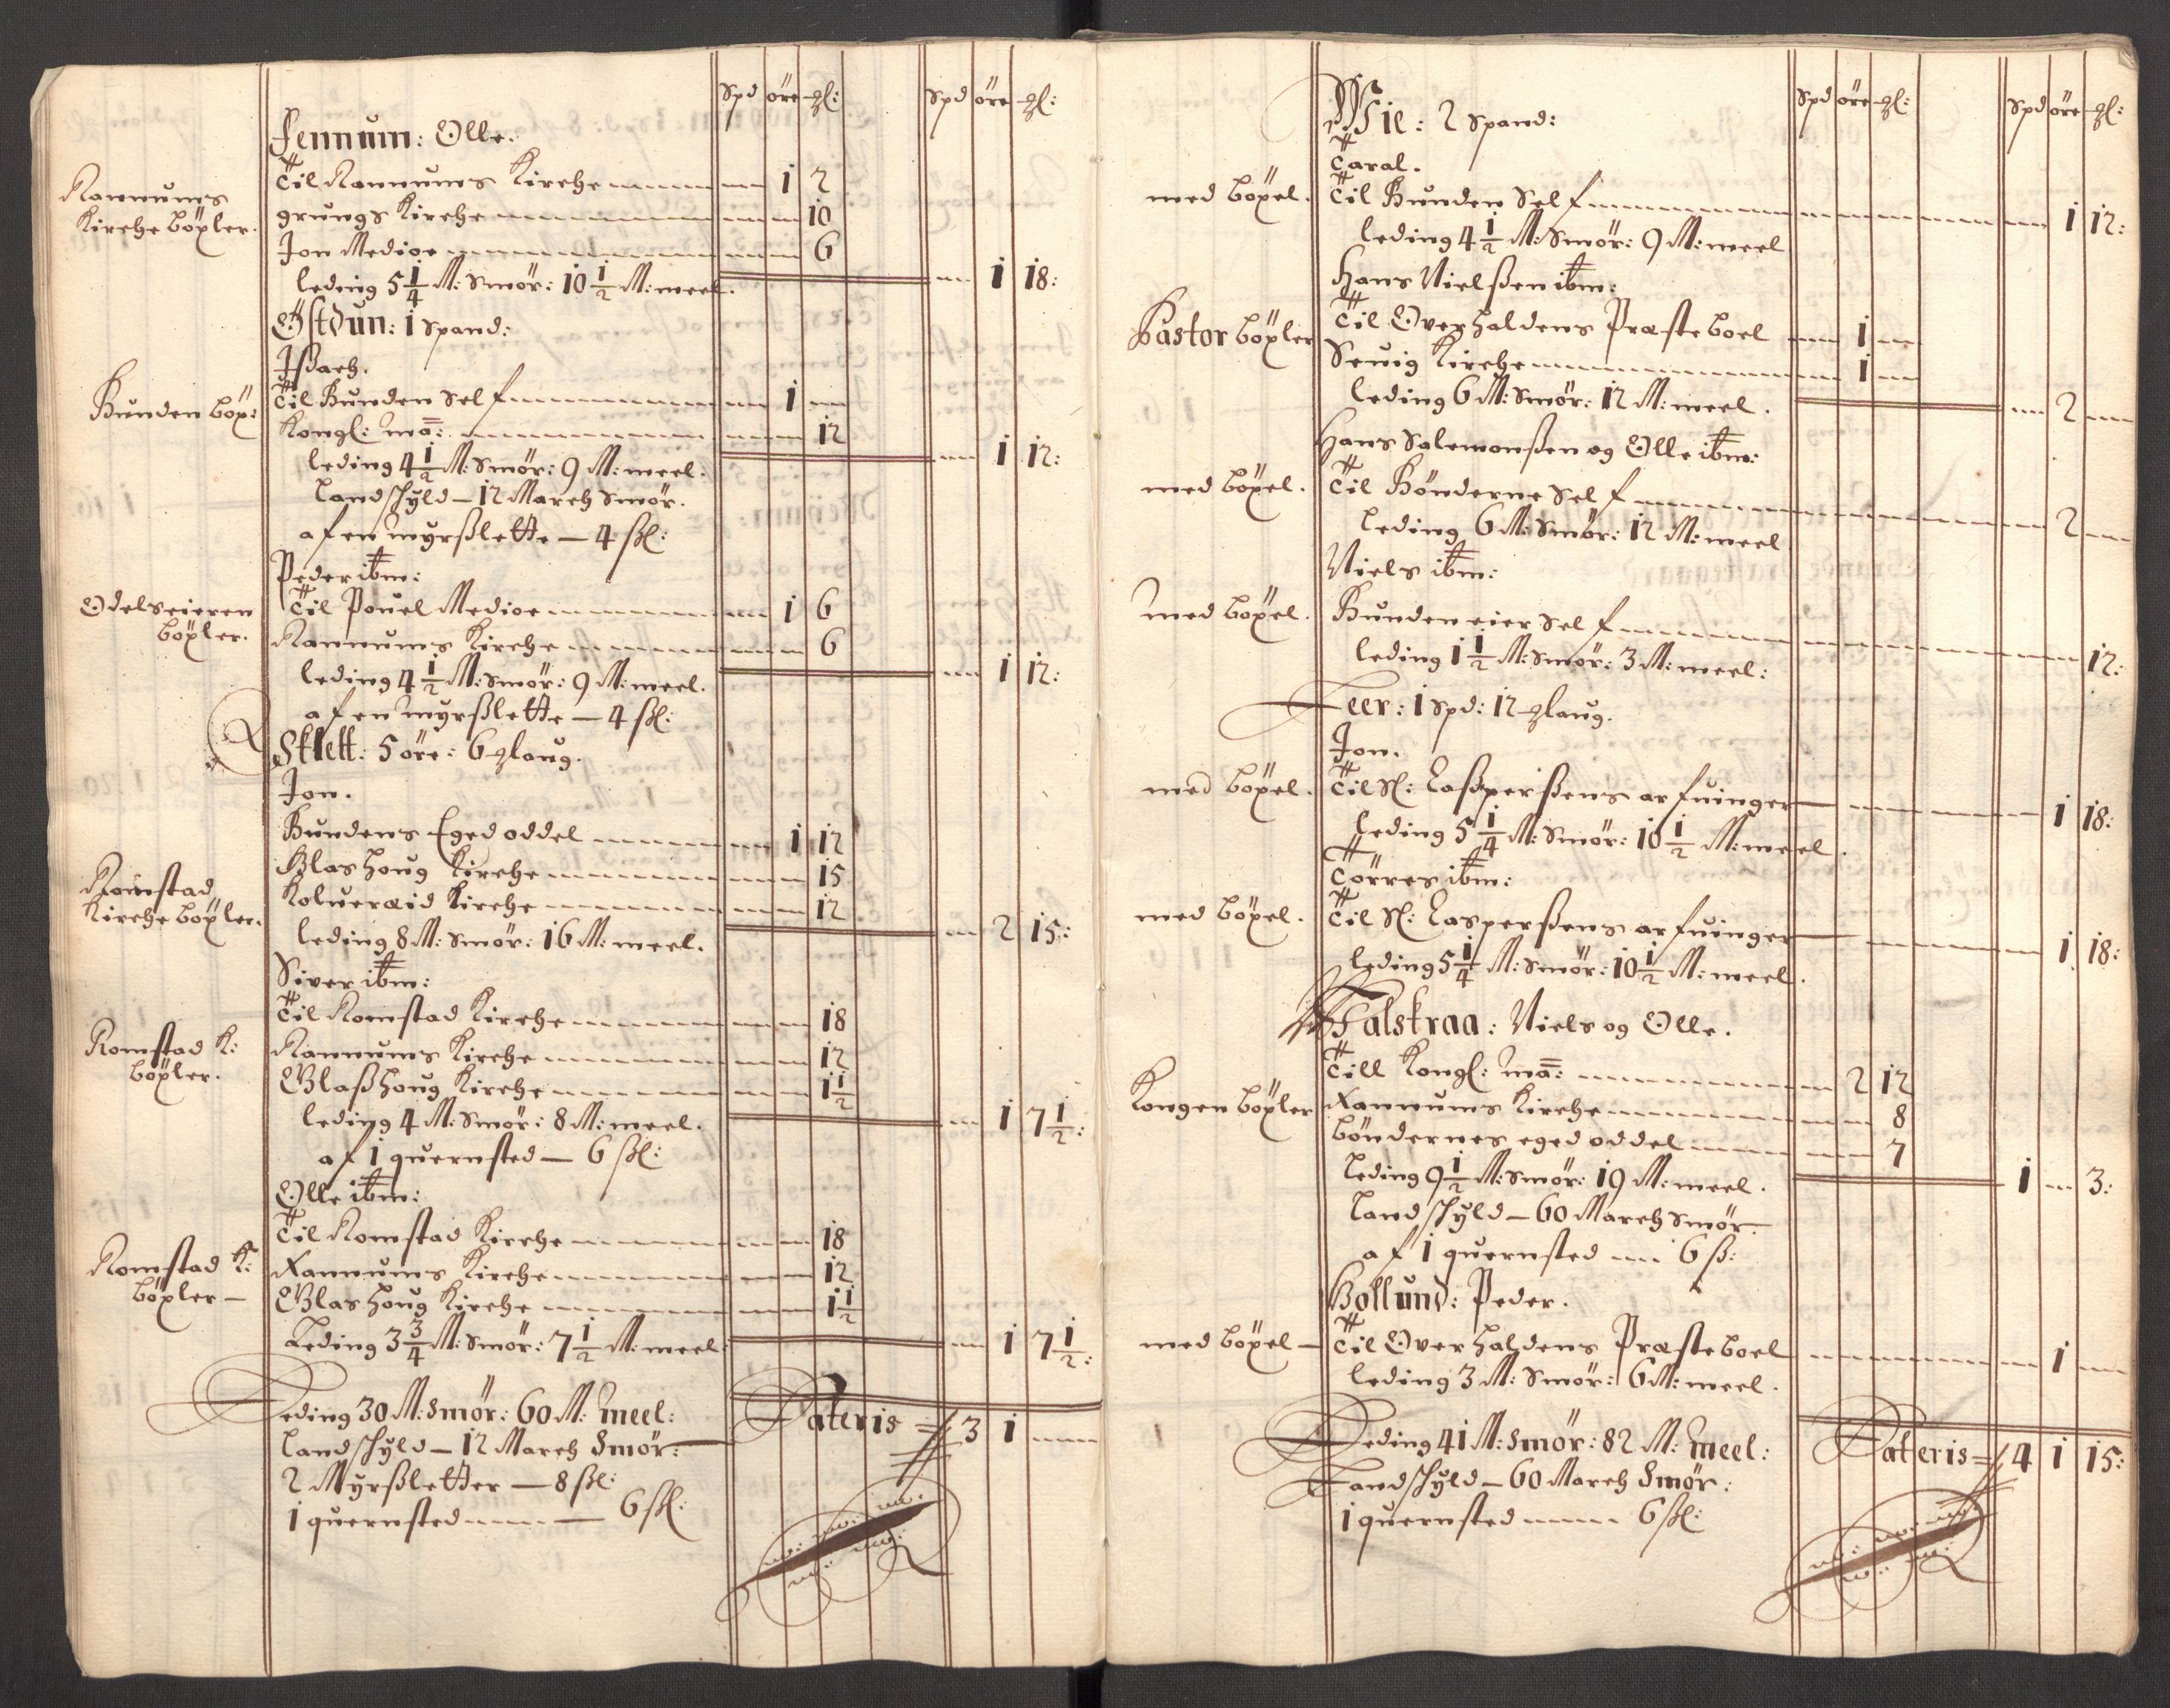 Spd öre gl: Spd öre gl:
Fennum: Olle.
Rannums Kirche böxler.
Til Rannums Kirche 1 2
grungs Kirche 10
Jon Medioe 6
leding 5 1/4 M: Smör: 10 1/2 M: meel. 1 18:
Östdun: 1 Spand:
Jßach.
Bunden böx: Til Bunden Self 1
Kongl: ma: 12
leding 4 1/2 M: Smör: 9 M: meel. 1 12:
Landschyld — 12 March Smör.
af en myrßlette — 4 ßl:
Peder ibm:
Odelseieren böxler.
Til Pouel Medioe 1 6
Rannums Kirche 6
leding 4 1/2 M: Smör: 9 M: meel. 1 12:
af en myrßlette — 4 ßl:
Sklett: 5 öre: 6 glaug.
Jon.
Bundens Eged oddel 1 12
Romstad Kirche böxler.
Blashoug Kirche 15
Kolueraid Kirche 12
leding 8 M: Smör: 16 M: meel. 2 15:
Siver ibm:
Til Romstad Kirche 18
Romstad K: böxler.
Rannums Kirche 12
Blaßhoug Kirche 1 1/2
leding 4 M: Smör: 8 M: meel. 1 7 1/2:
af 1 quernsted — 6 ßl:
Olle ibm:
Til Romstad Kirche 18
Romstad K: böxler —
Rannums Kirche 12
Blashoug Kirche 1 1/2
Leding 3 3/4 M: Smör: 7 1/2 M: meel: 1 7 1/2:
Leding 30 M: Smör: 60 M: meel: Lateris 3 1
Landschyld — 12 March Smör:
2 Myrßletter — 8 ßl:
1 quernsted — 6 ßl:
Spd öre gl: Spd öre gl:
Wie: 2 Spand:
Taral.
med böxel. Til Bunden Self 1 12:
leding 4 1/2 M: Smör: 9 M: meel
Hans Nielßen ibm:
Pastor böxler Til Overhaldens Præsteboel 1
Seuig Kirche 1
leding 6 M: Smör: 12 M: meel. 2
Hans Salemonßen og Olle ibm:
med böxel. Til Bönderne Self 2
leding 6 M: Smör: 12 M: meel
Niels ibm:
med böxel. Bunden eier Self 12:
leding 1 1/2 M: Smör: 3 M: meel:
Feer: 1 Spd: 12 glaug.
Jon.
med böxel. Til Sl: Caßperßens arfuinger 1 18:
leding 5 1/4 M: Smör: 10 1/2 M: meel.
Törres ibm:
med böxel. Til Sl: Casperßens arfuinger 1 18:
leding 5 1/4 M: Smör: 10 1/2 M: meel.
Falskraa: Niels og Olle.
Till Kongl: ma: 2 12
Kongen böxler Rannums Kirche 8
böndernes eged oddel 7
leding 9 1/2 M: Smör: 19 M: meel. 1 3:
Landschyld — 60 March Smör
af 1 quernsted 6 ß:
Hollund: Peder.
med böxel — Til Overhaldens Præsteboel 1
leding 3 M: Smör: 6 M: meel.
Leding 41 M: Smör: 82 M: meel: Lateris 4 1 15:
Landschyld — 60 March Smör:
1 quernsted 6 ßl: